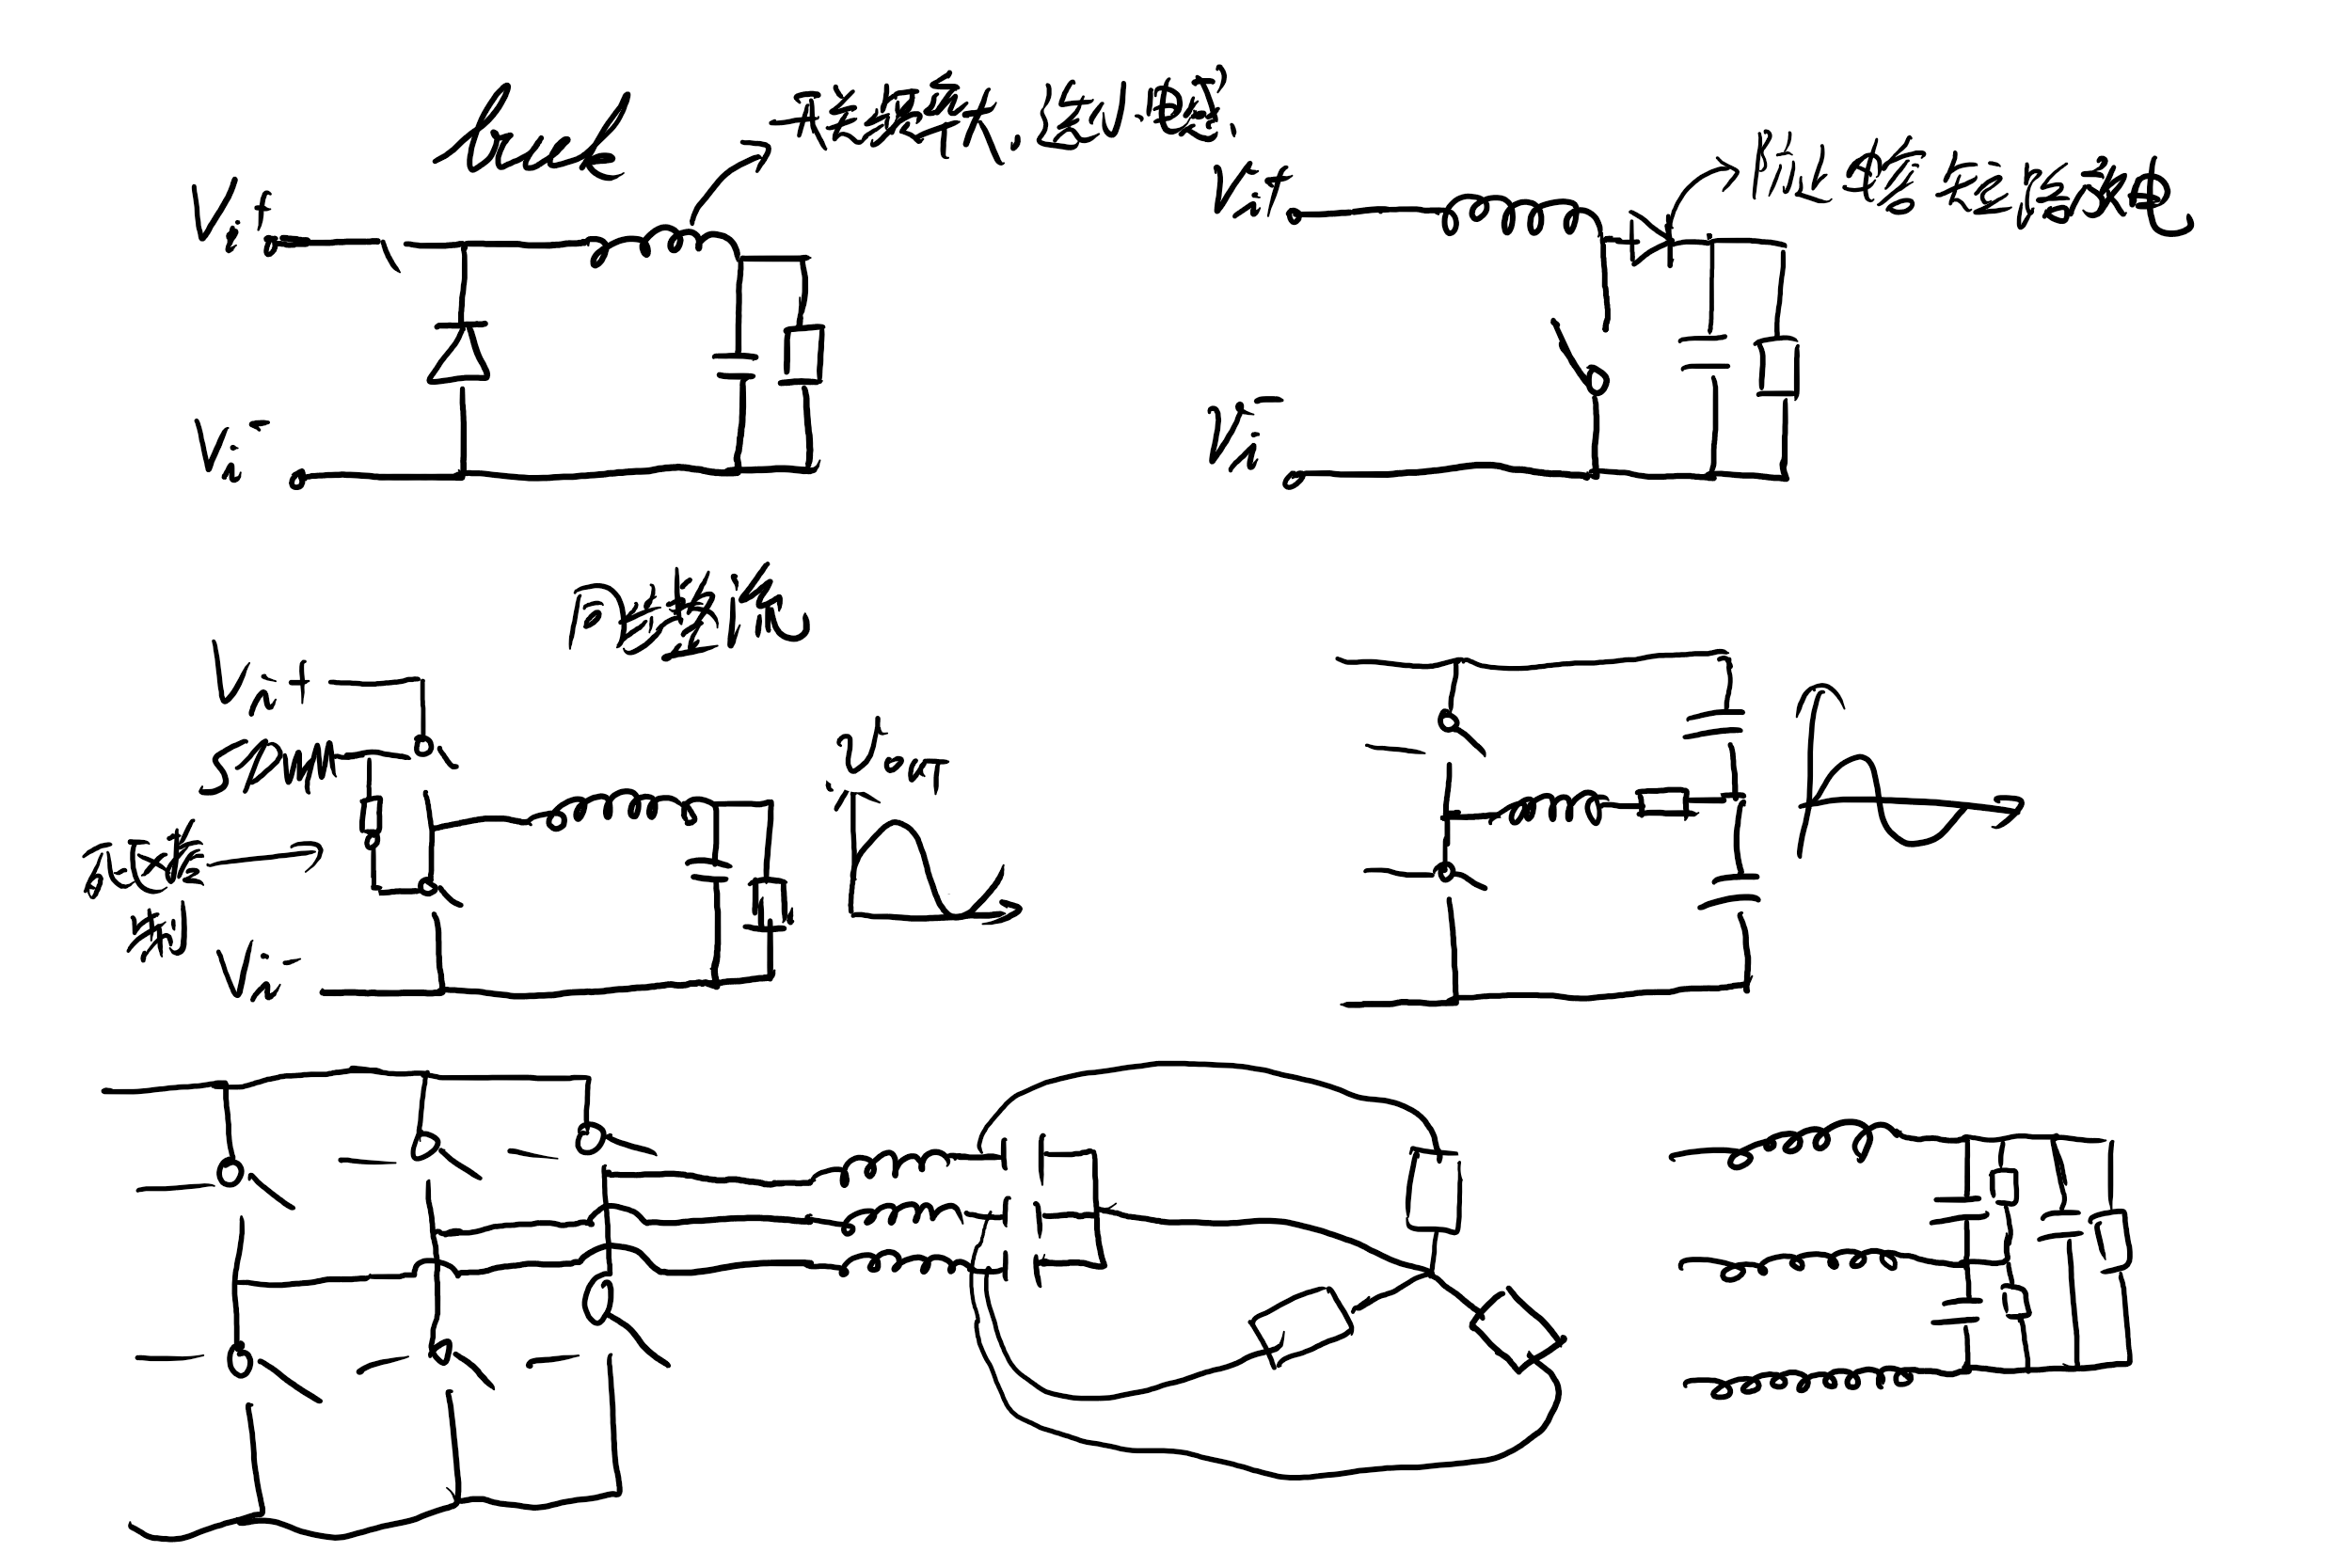 buck
开关频率大，这小电感.
Vi+
Vi-
Vi+
防止电容短路放电
Vi-
同步整流
Vi+
SPWM
式控
制
Vi-
Vout